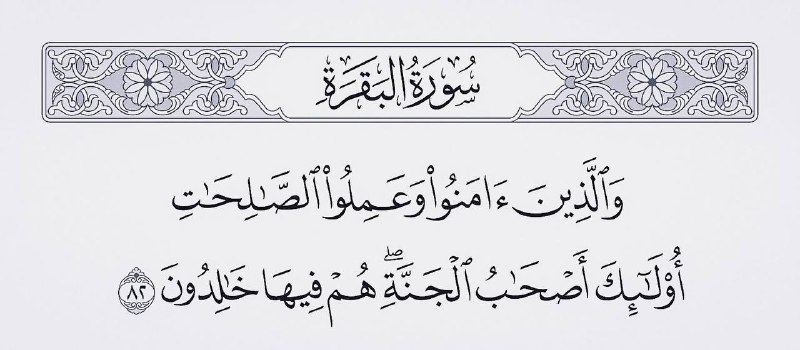 سُورَةُ البَقَرَةِ
وَٱلَّذِينَ ءَامَنُوا۟ وَعَمِلُوا۟ ٱلصَّـٰلِحَـٰتِ
أُو۟لَـٰٓئِكَ أَصْحَـٰبُ ٱلْجَنَّةِ ۖ هُمْ فِيهَا خَـٰلِدُونَ ٨٢